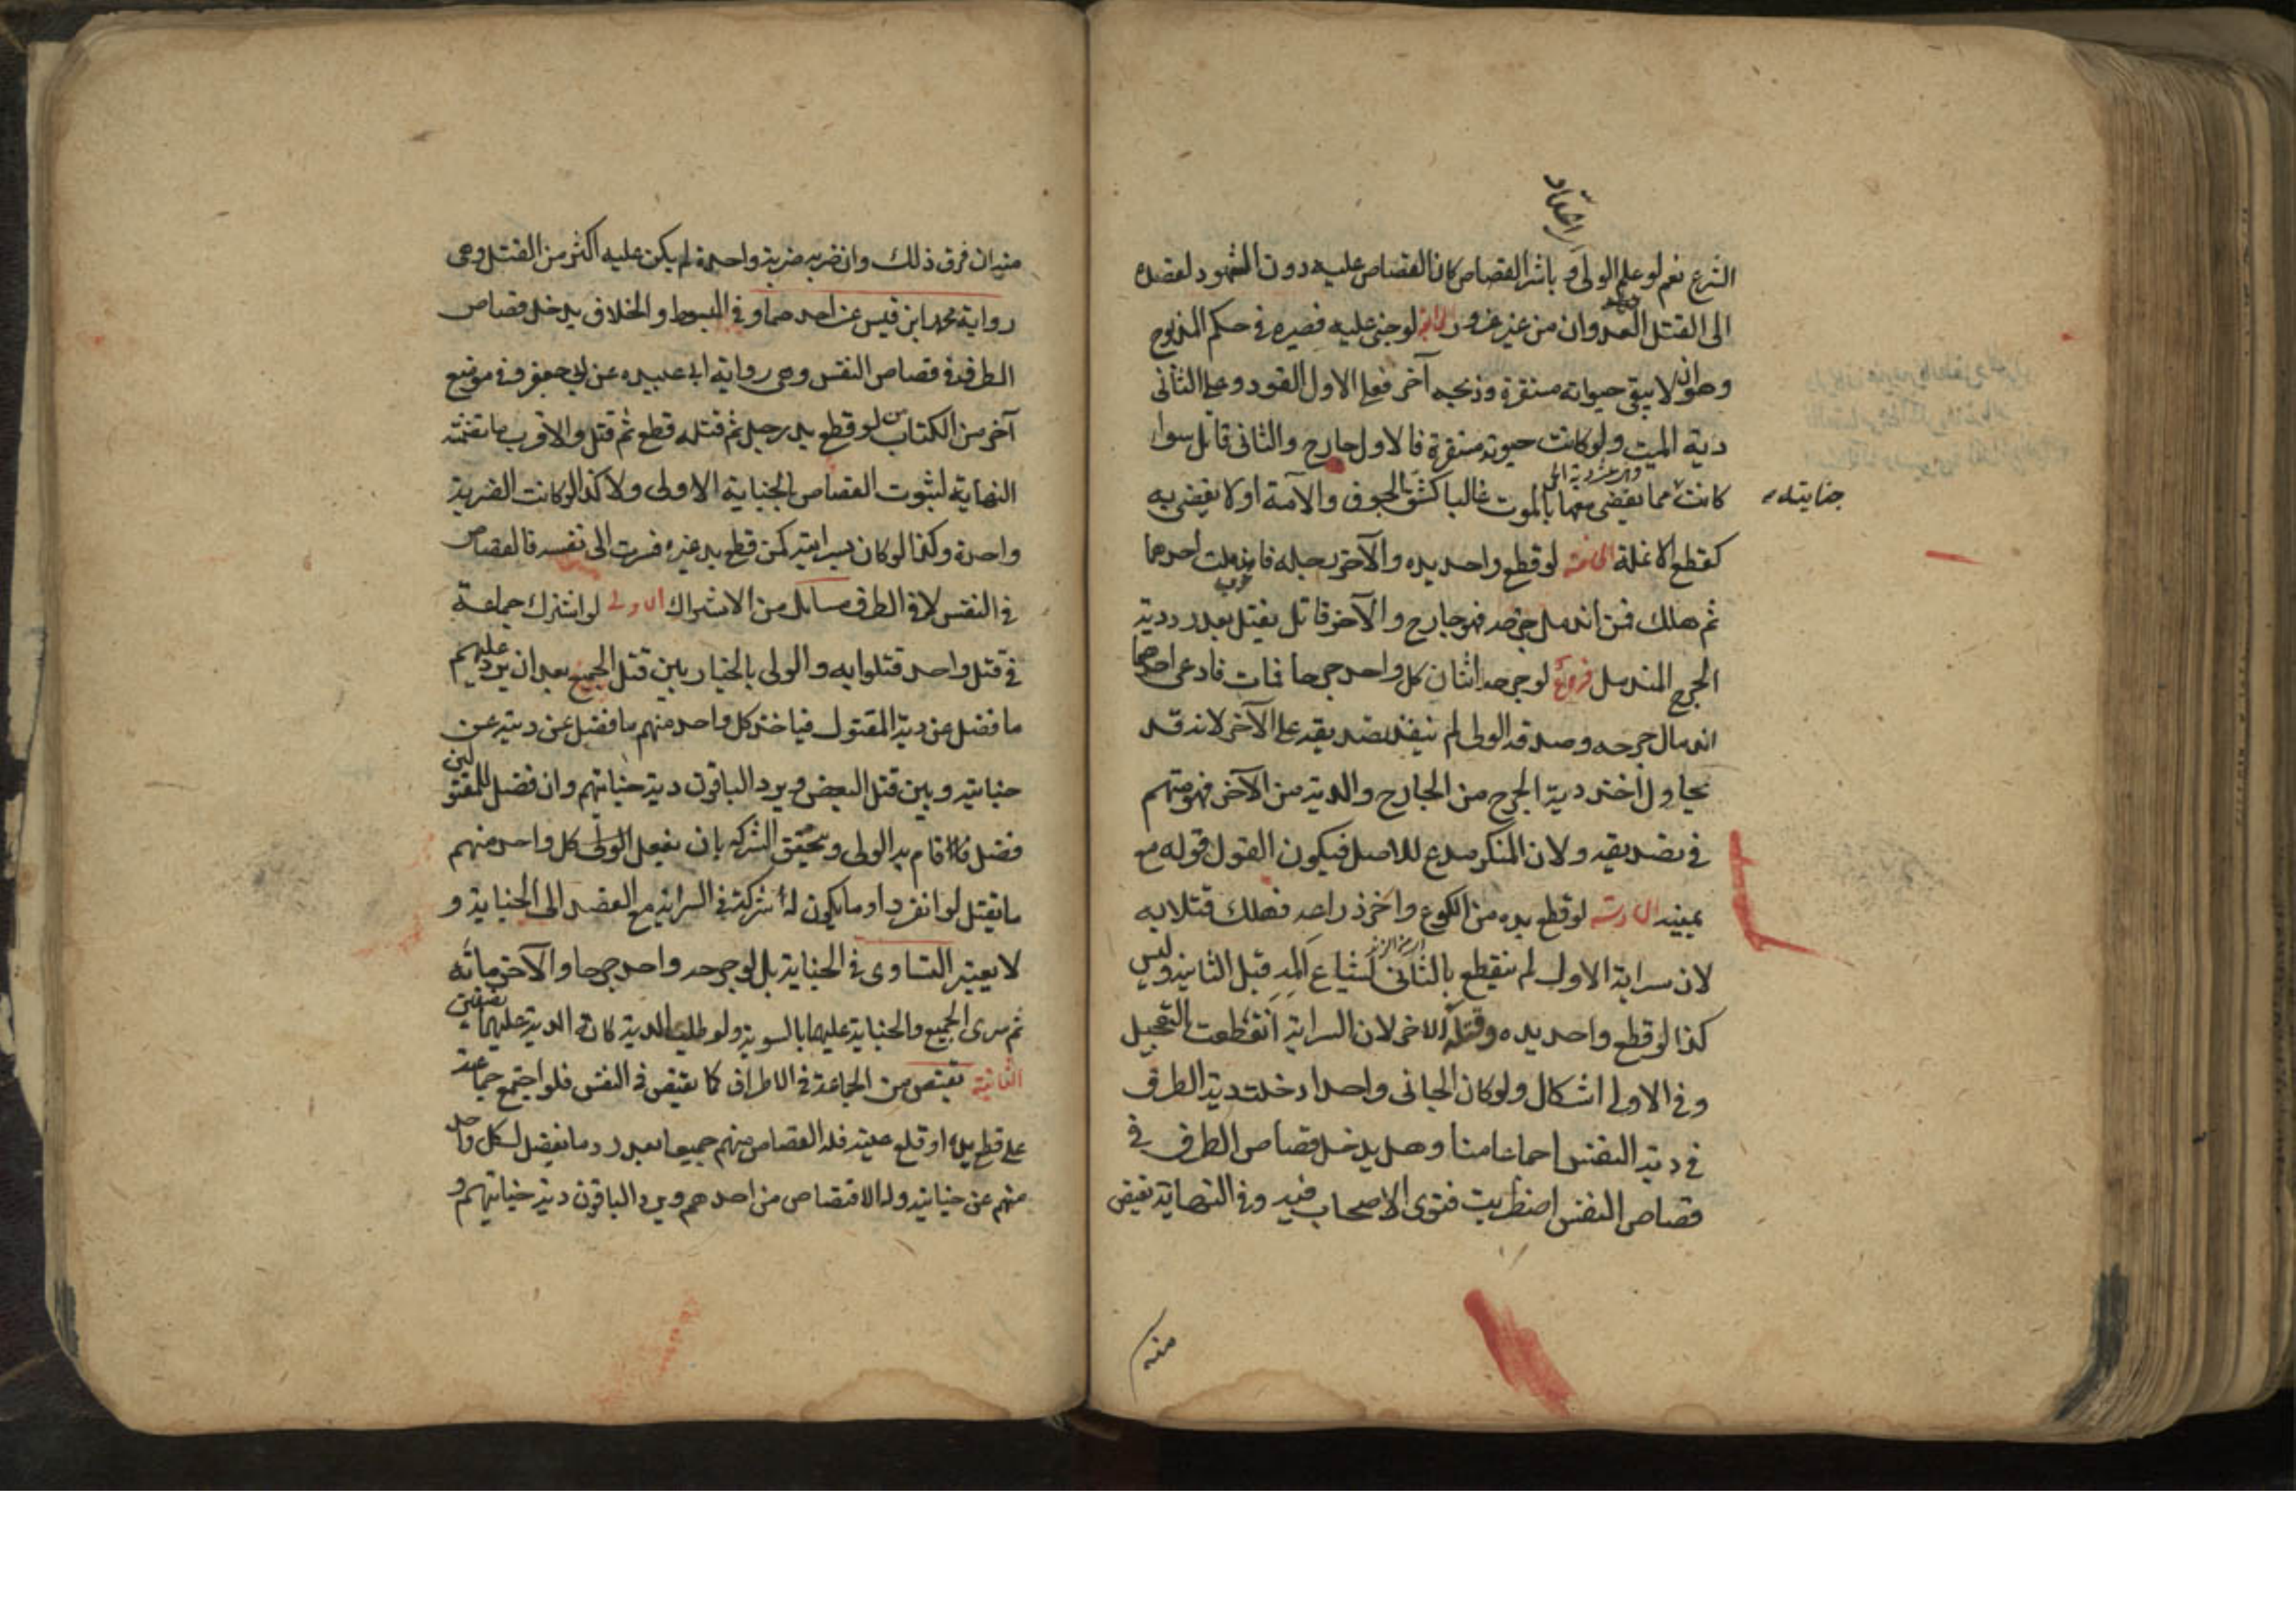 الشرع نعم لو علم الولي و باشر القصاص كان القصاص عليه دون الشهود لقصده
الى القتل العدوان من غير غرور الرابعة لو جنى عليه فصيره في حكم المذبوح
وهو ان لا يبقى حيوته مستقرة وذبحه آخر فعلى الاول القود وعلى الثاني
دية الميت ولو كانت حيوته مستقرة فالاول جارح والثاني قاتل سوا
كانت مما يقضى معها بالموت غالبا كشق الجوف والآمة او لا يقضى به
جنايته
كقطع الانملة الخامسة لو قطع واحد يده والآخر رجله فاندملت احدهما
ثم هلك فمن اندمل جرحه فهو جارح والآخر قاتل يقتل بعد رد دية
الجرح المندمل فروع لو جرحه اثنان كل واحد جرحا فمات فادعى احدهما
اندمال جرحه وصدقه الولي لم ينفذ تصديقه على الآخر لانه قد
يحاول اخذ دية الجرح من الجارح والدية من الآخر فهو متهم
في تصديقه ولان المنكر مدع للاصل فيكون القول قوله مع
يمينه السادسة لو قطع يده من الكوع واخر ذراعه فهلك قتلا به
لان سراية الاول لم ينقطع بالثاني لشياع المه قبل الثانية وليس
كذا لو قطع واحد يده وقتله الاخر لان السراية انقطعت بالتعجيل
وفي الاولى اشكال ولو كان الجاني واحدا دخلت دية الطرف
في دية النفس اجماعا منا وهل يدخل قصاص الطرف في
قصاص النفس اضطربت فتوى الاصحاب فيه وفي النهاية يقتص
منه
منه ان فرق ذلك وان ضربه ضربة واحدة لم يكن عليه اكثر من القتل وهي
رواية محمد ابن قيس عن احدهما وفي المبسوط والخلاف يدخل قصاص
الطرف في قصاص النفس وهي رواية ابي عبيده عن ابي جعفر وفي موضع
آخر من الكتابين لو قطع يد رجل ثم قتله قطع ثم قتل والاقرب ما تضمنته
النهاية لثبوت القصاص بالجناية الاولى ولا كذا لو كانت الضربة
واحدة وكذا لو كان بسرايته كمن قطع يد غيره فسرت الى نفسه فالقصاص
في النفس لا في الطرف مسائل من الاشتراك الاولى لو اشترك جماعة
في قتل واحد قتلوا به والولي بالخيار بين قتل الجميع بعد ان يرد عليهم
ما فضل عن دية المقتول فياخذ كل واحد منهم ما فضل عن ديته عن
جنايته وبين قتل البعض ويرد الباقون دية جنايتهم وان فضل للمقتولين
فضل قام به الولي ويتحقق الشركه بان يفعل كل واحد منهم
ما يقتل لو انفرد او ما يكون له شركة في السراية مع القصد الى الجناية و
لا يعتبر التساوى في الجناية بل لو جرحه واحد جرحا والآخر مائه
ثم سرى الجميع فالجناية عليهما بالسوية ولو طلب الدية كانت الدية عليهما نصفين
الثانية يقتص من الجماعة في الاطراف كما يقتص في النفس فلو اجتمع جماعة
على قطع يده او قلع عينه فله القصاص منهم جميعا بعد رد ما يفضل لكل واحد
منهم عن جنايته وله الاقتصاص من احدهم ويرد الباقون دية جنايتهم و